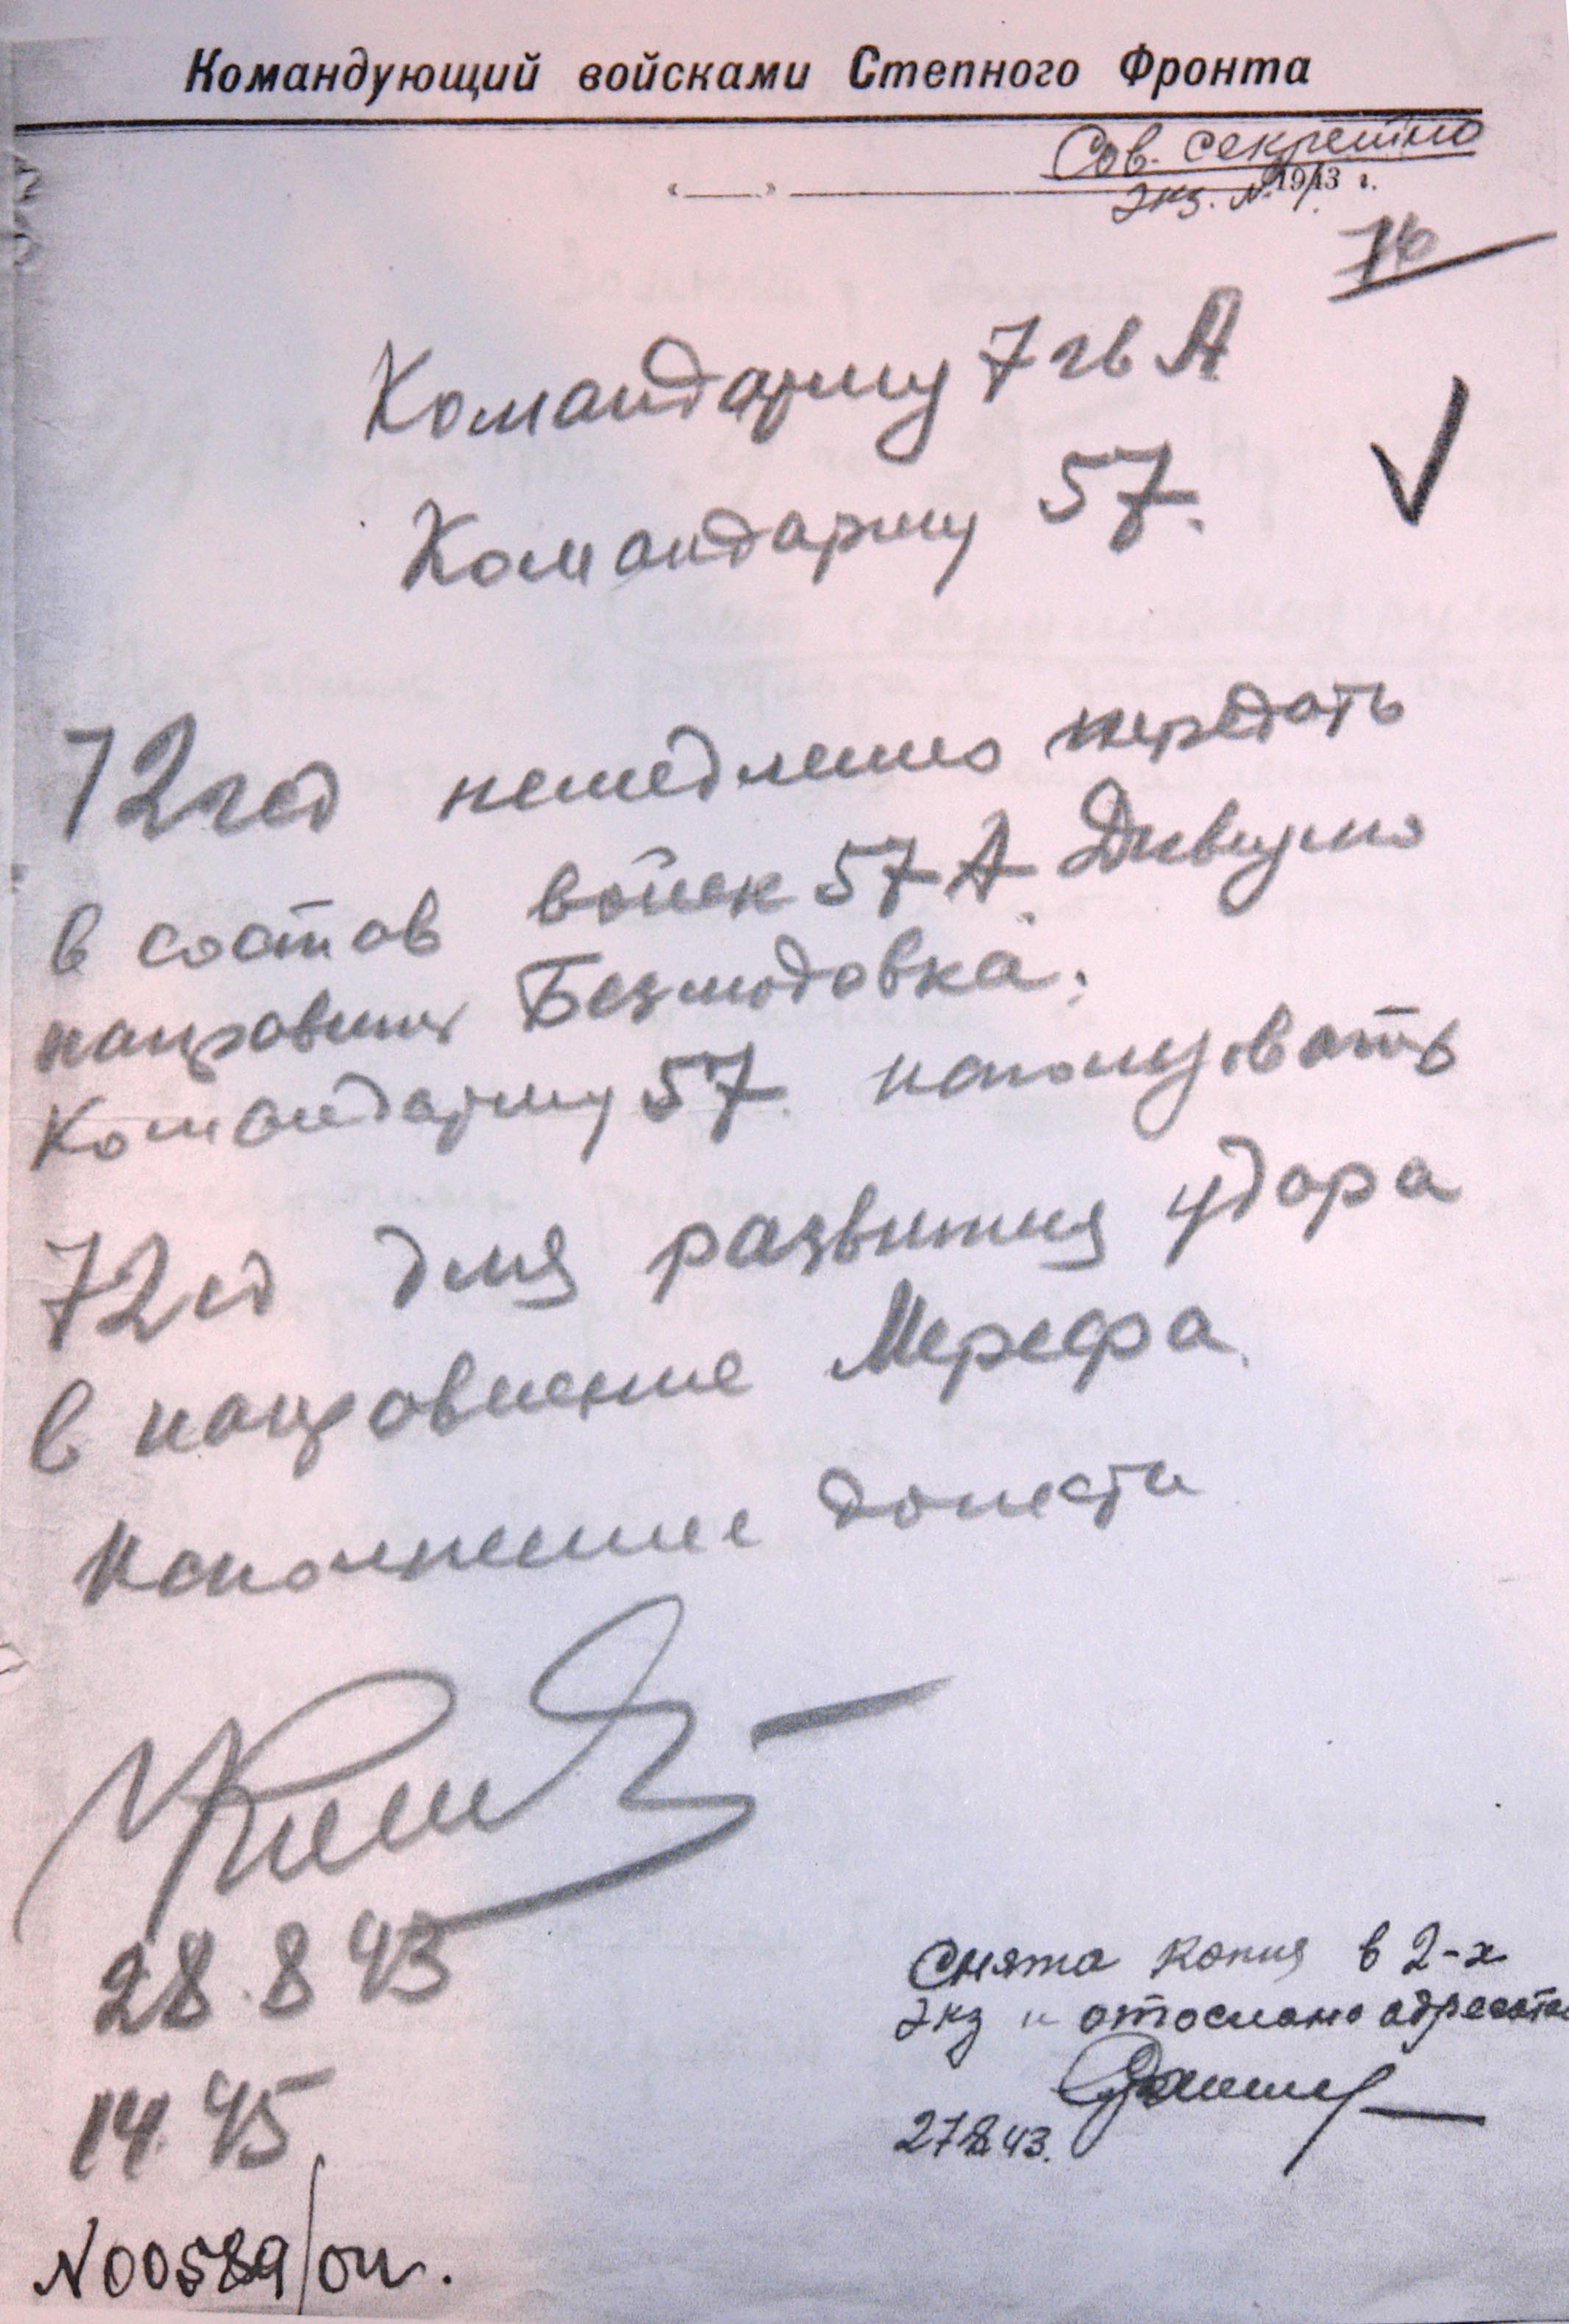 Командующий войсками Степного Фронта
Сов. секретно
"___" ___ 1943 г.
экз. №1.
76
Командарму 7 гв А
Командарму 57.
72 гсд немедленно передать
в состав войск 57 А. Дивизию
направить Безлюдовка.
Командарму 57. использовать
72 сд для развития удара
в направление Мерефа.
Исполнение донести
28.8 43
14.45
Снята копия в 2-х
экз и отослано адресатам
27.8.43.
N00589/оп.